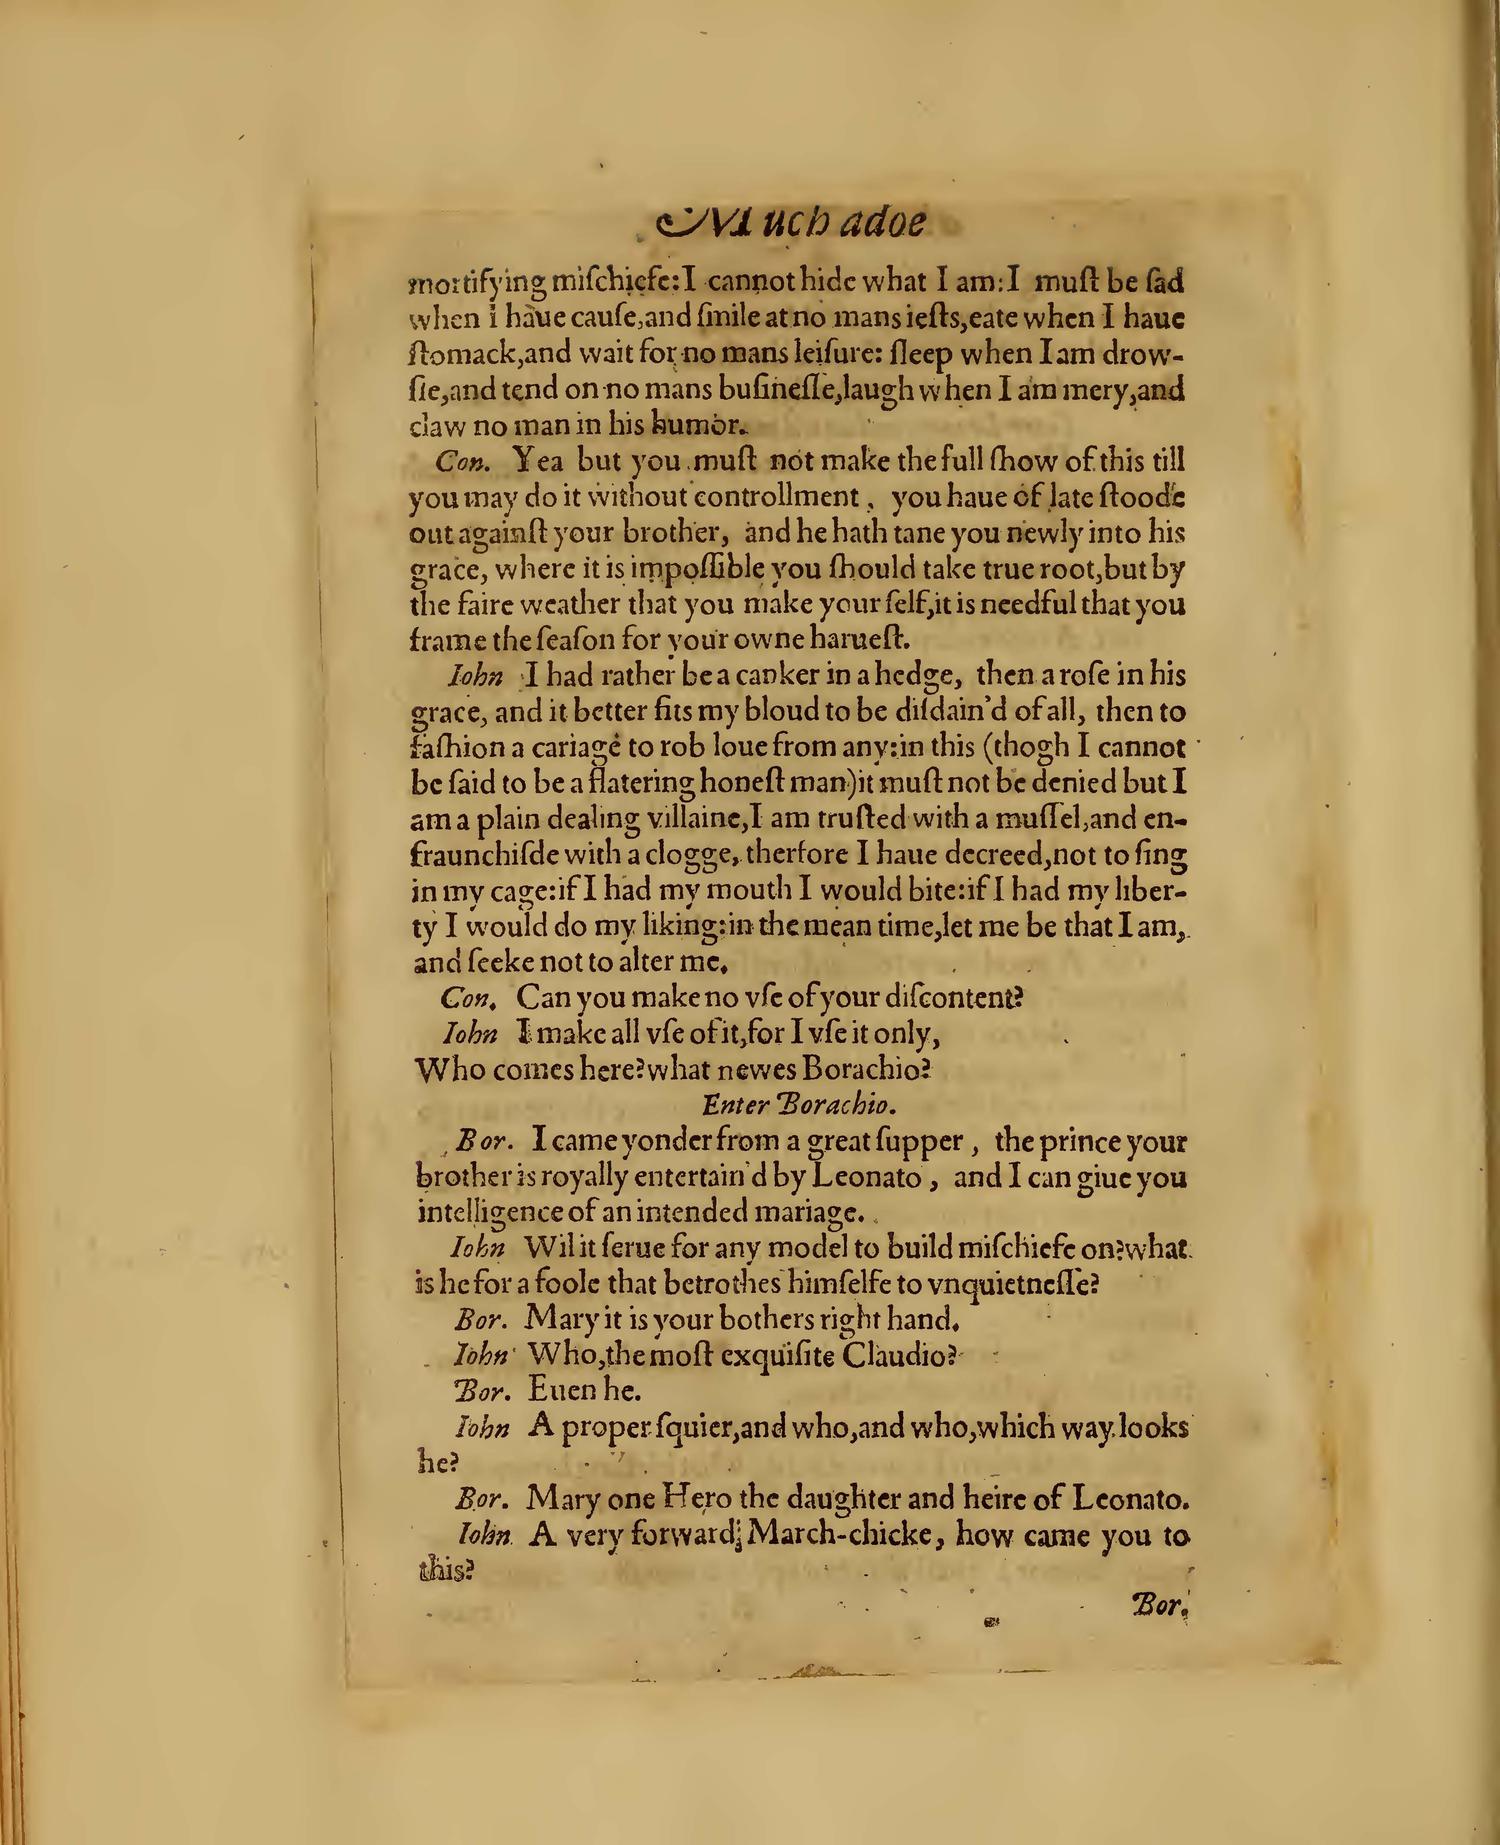 Much adoe
mortifying miſchiefe:I cannot hide what I am:I muſt be ſad
when i haue cauſe,and ſmile at no mans ieſts,eate when I haue
ſtomack,and wait for no mans leiſure: ſleep when I am drow-
ſie,and tend on no mans buſineſſe,laugh when I am mery,and
claw no man in his humor.
Con. Yea but you muſt not make the full ſhow of this till
you may do it without controllment, you haue of late ſtoode
out againſt your brother, and he hath tane you newly into his
grace, where it is impoſſible you ſhould take true root,but by
the faire weather that you make your ſelf,it is needful that you
frame the ſeaſon for your owne harueſt.
Iohn I had rather be a canker in a hedge, then a roſe in his
grace, and it better fits my bloud to be diſdain'd of all, then to
faſhion a cariage to rob loue from any:in this (thogh I cannot
be ſaid to be a flatering honeſt man)it muſt not be denied but I
am a plain dealing villaine,I am truſted with a muſſel,and en-
fraunchiſde with a clogge, therfore I haue decreed,not to ſing
in my cage:if I had my mouth I would bite:if I had my liber-
ty I would do my liking:in the mean time,let me be that I am,
and ſeeke not to alter me.
Con. Can you make no vſe of your diſcontent?
Iohn I make all vſe of it,for I vſe it only,
Who comes here?what newes Borachio?
Enter Borachio.
Bor. I came yonder from a great ſupper, the prince your
brother is royally entertain'd by Leonato, and I can giue you
intelligence of an intended mariage.
Iohn Wil it ſerue for any model to build miſchiefe on?what
is he for a foole that betrothes himſelfe to vnquietneſſe?
Bor. Mary it is your bothers right hand.
Iohn Who,the moſt exquiſite Claudio?
Bor. Euen he.
Iohn A proper ſquier,and who,and who,which way looks
he?
Bor. Mary one Hero the daughter and heire of Leonato.
Iohn A very forward March-chicke, how came you to
this?
Bor.